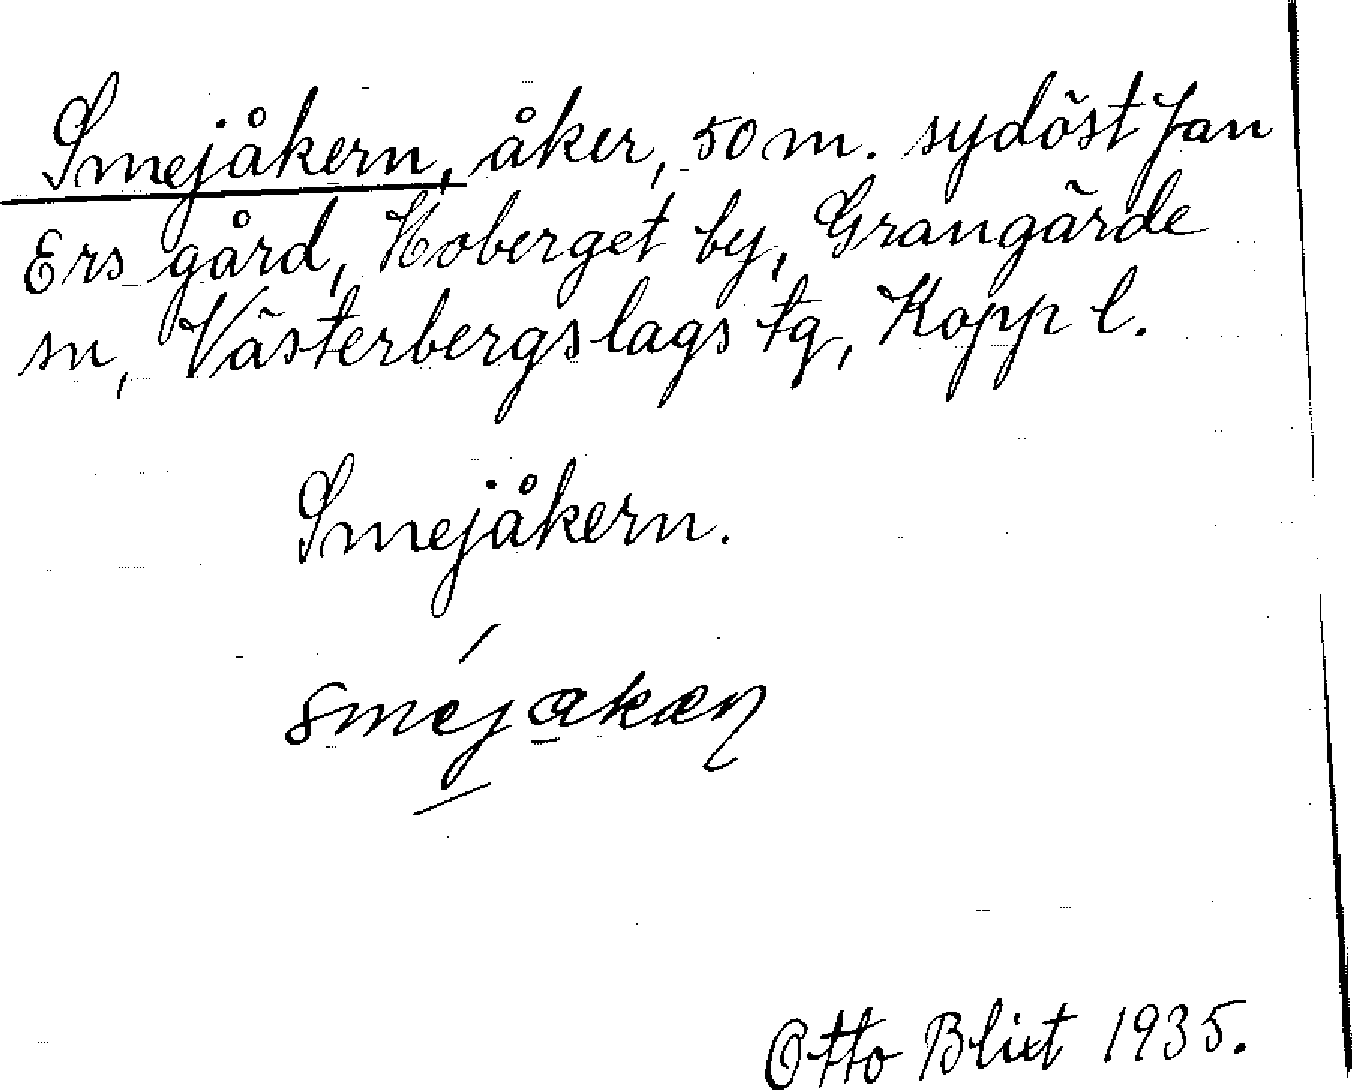 Smejåkern, åker, 50 m. sydöst Jan
Ers gård, Hoberget by, Grangärde
sn, Västerbergslags tg, Kopp l.
Smejåkern.
smejakæn
Otto Blixt 1935.